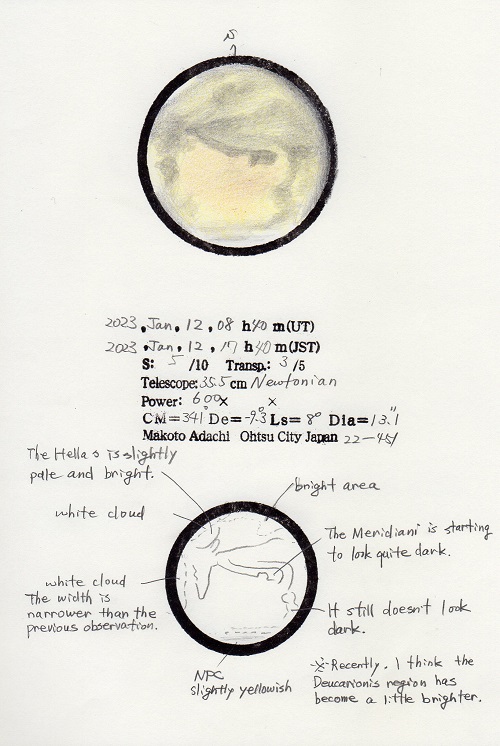 S
2023, Jan, 12, 08 h 40 m (UT)
2023, Jan, 12, 17 h 40 m (JST)
S: 5 /10 Transp.: 3 /5
Telescope: 35.5 cm Newtonian
Power: 600× ×
CM=341° De=-9.3° Ls= 8° Dia=13.1"
Makoto Adachi Ohtsu City Japan 22-45
The Hellas is slightly
pale and bright.
bright area
white cloud
The Meridiani is starting
to look quite dark.
white cloud
The width is
narrower than the
previous observation.
It still doesn't look
dark.
NPC
slightly yellowish
※Recently. I think the
Deucarionis region has
become a little brighter.